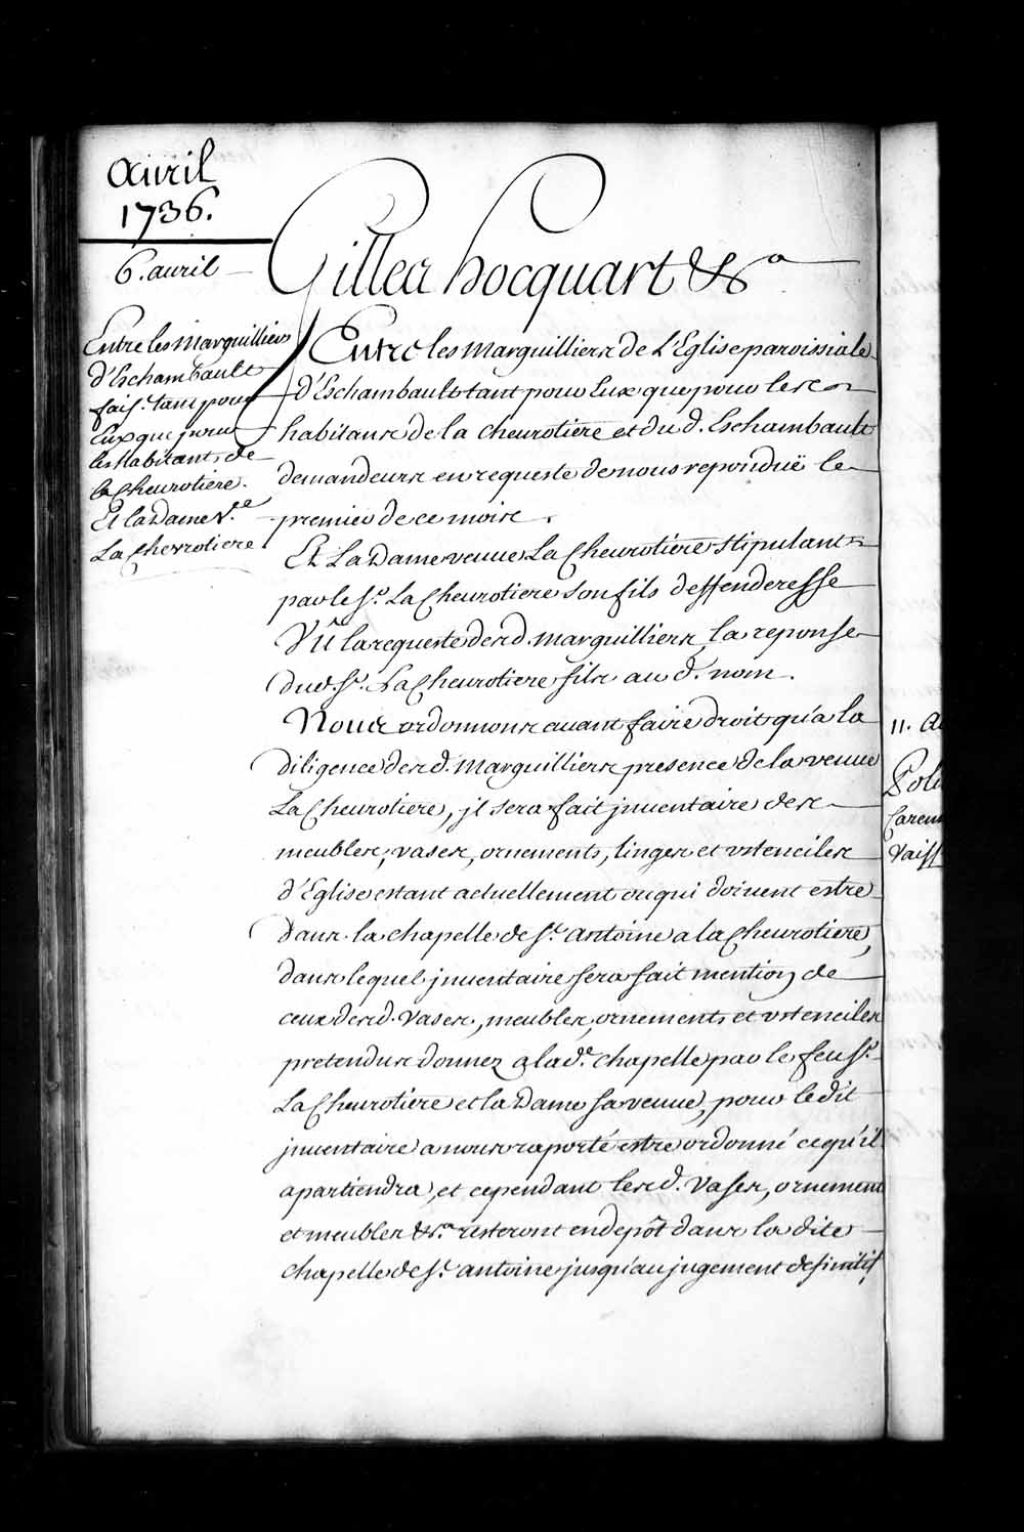 Avril
1736.
6. avril
Gilles hocquart &ca
Entre les Marguilliers
d'Eschambault
fais.t tant pour
Eux que pour
les habitants de
la Chevrotiere.
Et la Dame v.e
La Chevrotiere
Entre les Marguilliers de L'Eglise paroissiale
d'Eschambault tant pour Eux que pour les
habitans de la chevrotiere et du d. Eschambault
demandeurs en requeste de nous repondüe le
premier de ce mois.
Et La Dame veuve La Chevrotiere Stipulant
par le S.r La Chevrotiere son fils deffenderesse
Vû la requeste desd. marguilliers, la reponse
dud. S.r La Chevrotiere fils au d. nom.
Nous ordonnons avant faire droit qu'a la
diligence desd. Marguilliers presence de la veuve
La Chevrotiere, jl sera fait jnventaire des
meubles, vases, ornements, linges et ustenciles
d'Eglise estant actuellement ou qui doivent estre
dans la chapelle de S.t antoine a la Chevrotiere,
dans lequel jnventaire sera fait mention de
ceux desd. Vases, meubles, ornements et ustenciles
pretendus donnez a lad.e chapelle par le feu S.r
La Chevrotiere et la Dame sa veuve, pour le dit
jnventaire a nous raporté estre ordonné ce qu'il
apartiendra, et cependant lesd. Vases, ornement
et meubles &ca resteront en depôt dans la dite
chapelle de S.t antoine jusqu'au jugement definitif
11. A